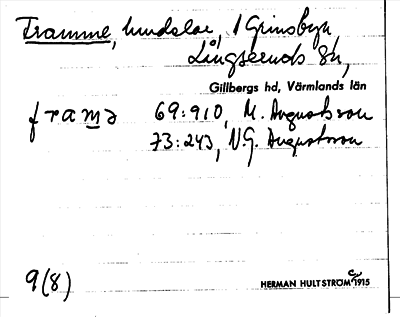 Framme, lundslar, i Grinsbyn
Långseruds sn,
Gillbergs hd, Värmlands län
framə 69:910, M. Augustsson
73:243, N.G. Augustsson
9(8)
HERMAN HULTSTRÖM 1915